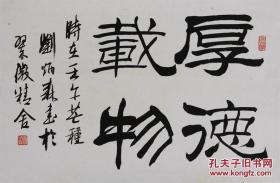 厚德
載物
時在壬午芒種
劉炳森書於
翠微精舍